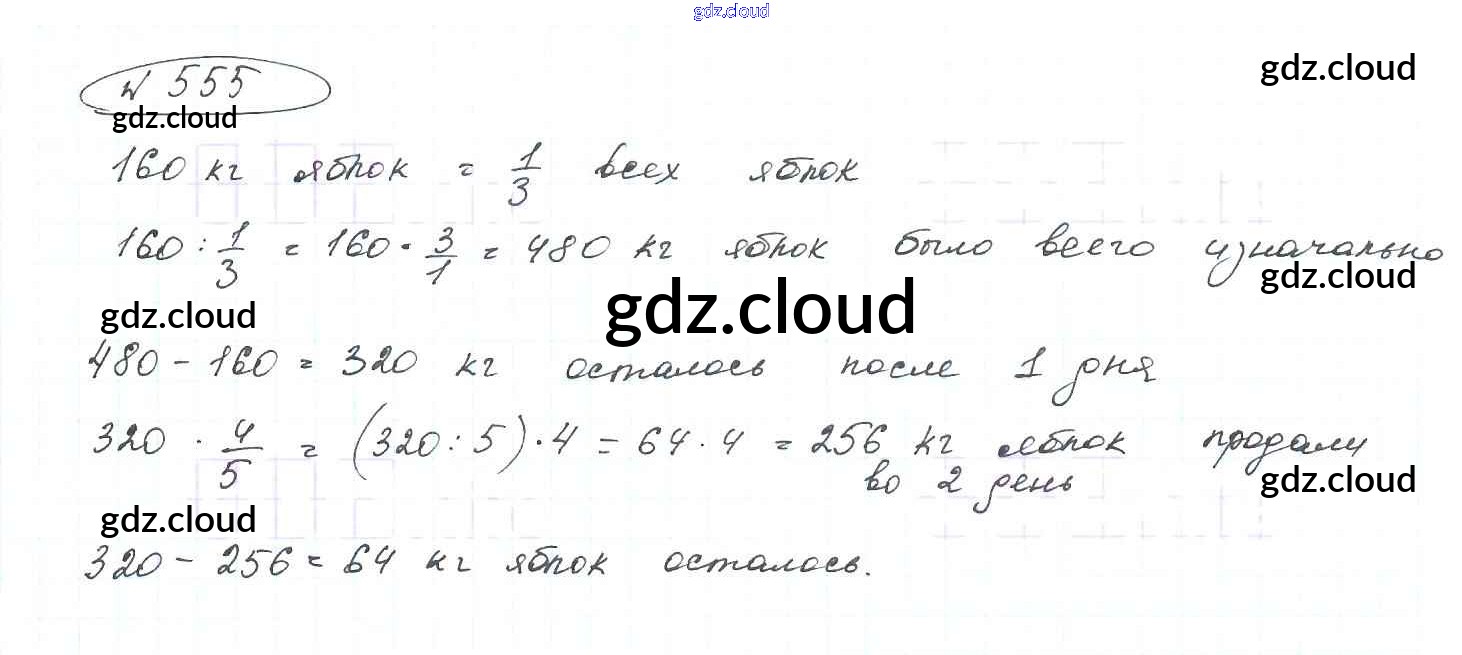 gdz.cloud
№ 555
gdz.cloud
gdz.cloud
160 кг яблок = 1/3 всех яблок
160 : 1/3 = 160 · 3/1 = 480 кг яблок было всего изначально
gdz.cloud
gdz.cloud
gdz.cloud
480 - 160 = 320 кг осталось после 1 дня
320 · 4/5 = (320 : 5) · 4 = 64 · 4 = 256 кг яблок продали
во 2 день
gdz.cloud
gdz.cloud
320 - 256 = 64 кг яблок осталось.